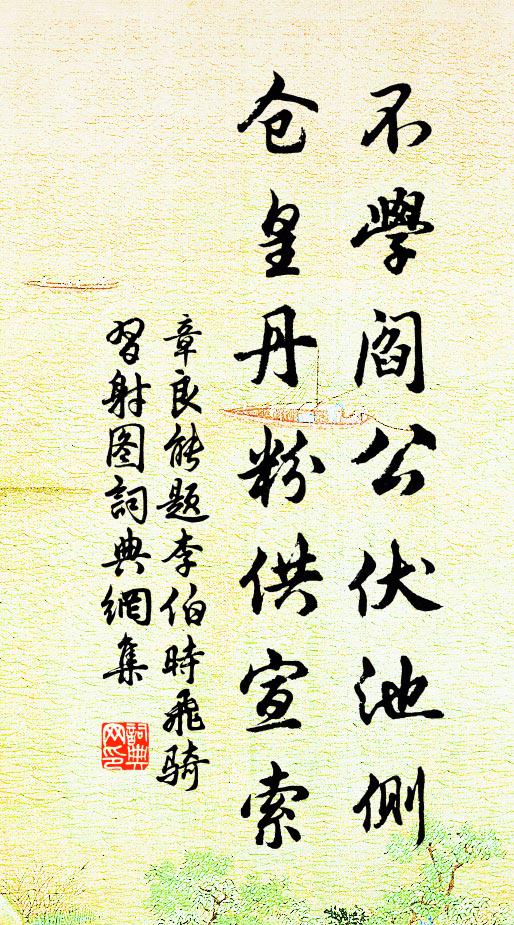 不學阎公伏池側
仓皇丹粉供宣索
章良能题李伯時飛骑
習射图詞典網集
詞典
网印